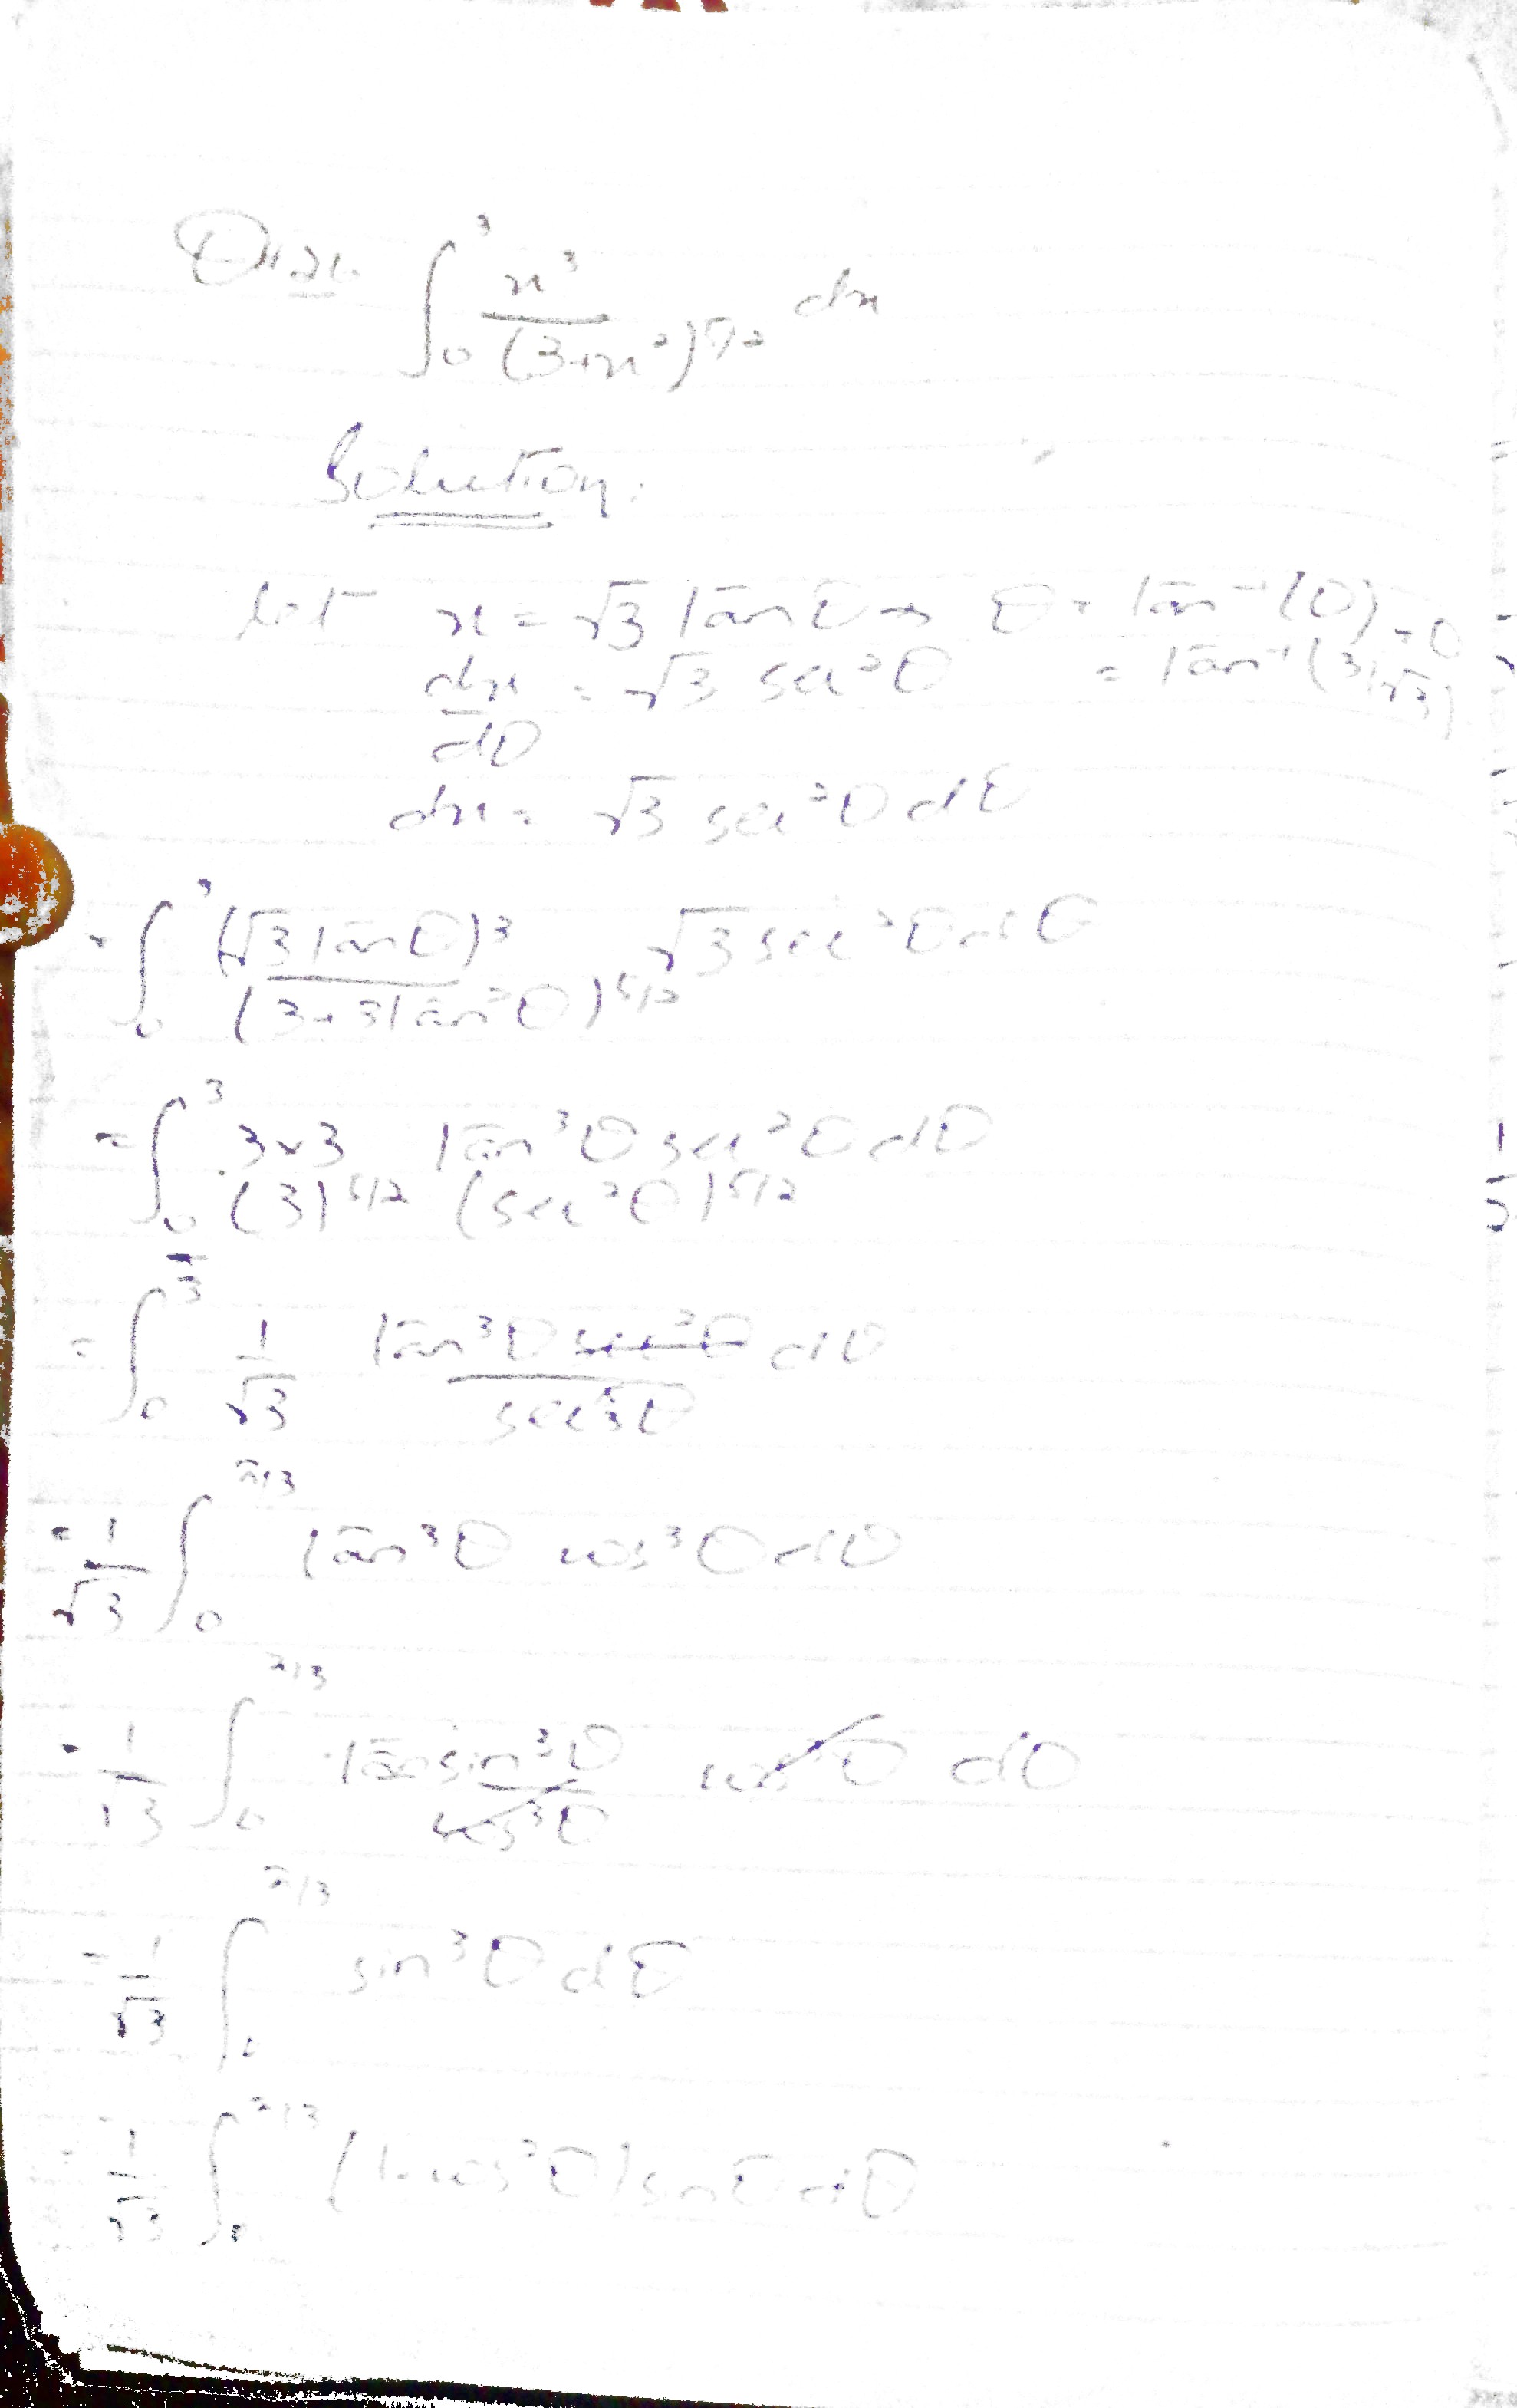 Q:21. ∫₀³ x³/(3+x²)^5/2 dx
Solution:
let x = √3 tanθ ⇒ θ = tan⁻¹(0) = 0
dx/dθ = √3 sec²θ = tan⁻¹(3/√3)
dx = √3 sec²θ dθ
= ∫₀³ (√3 tanθ)³/(3+3tan²θ)^5/2 √3 sec²θ dθ
= ∫₀³ 3×3/(3)^5/2 tan³θ sec²θ dθ/(sec²θ)^5/2
= ∫₀^π/3 1/√3 tan³θ sec²θ dθ/sec⁵θ
= 1/√3 ∫₀^π/3 tan³θ cos³θ dθ
= 1/√3 ∫₀^π/3 sin³θ/cos³θ cos³θ dθ
= 1/√3 ∫₀^π/3 sin³θ dθ
= 1/√3 ∫₀^π/3 (1-cos²θ) sinθ dθ